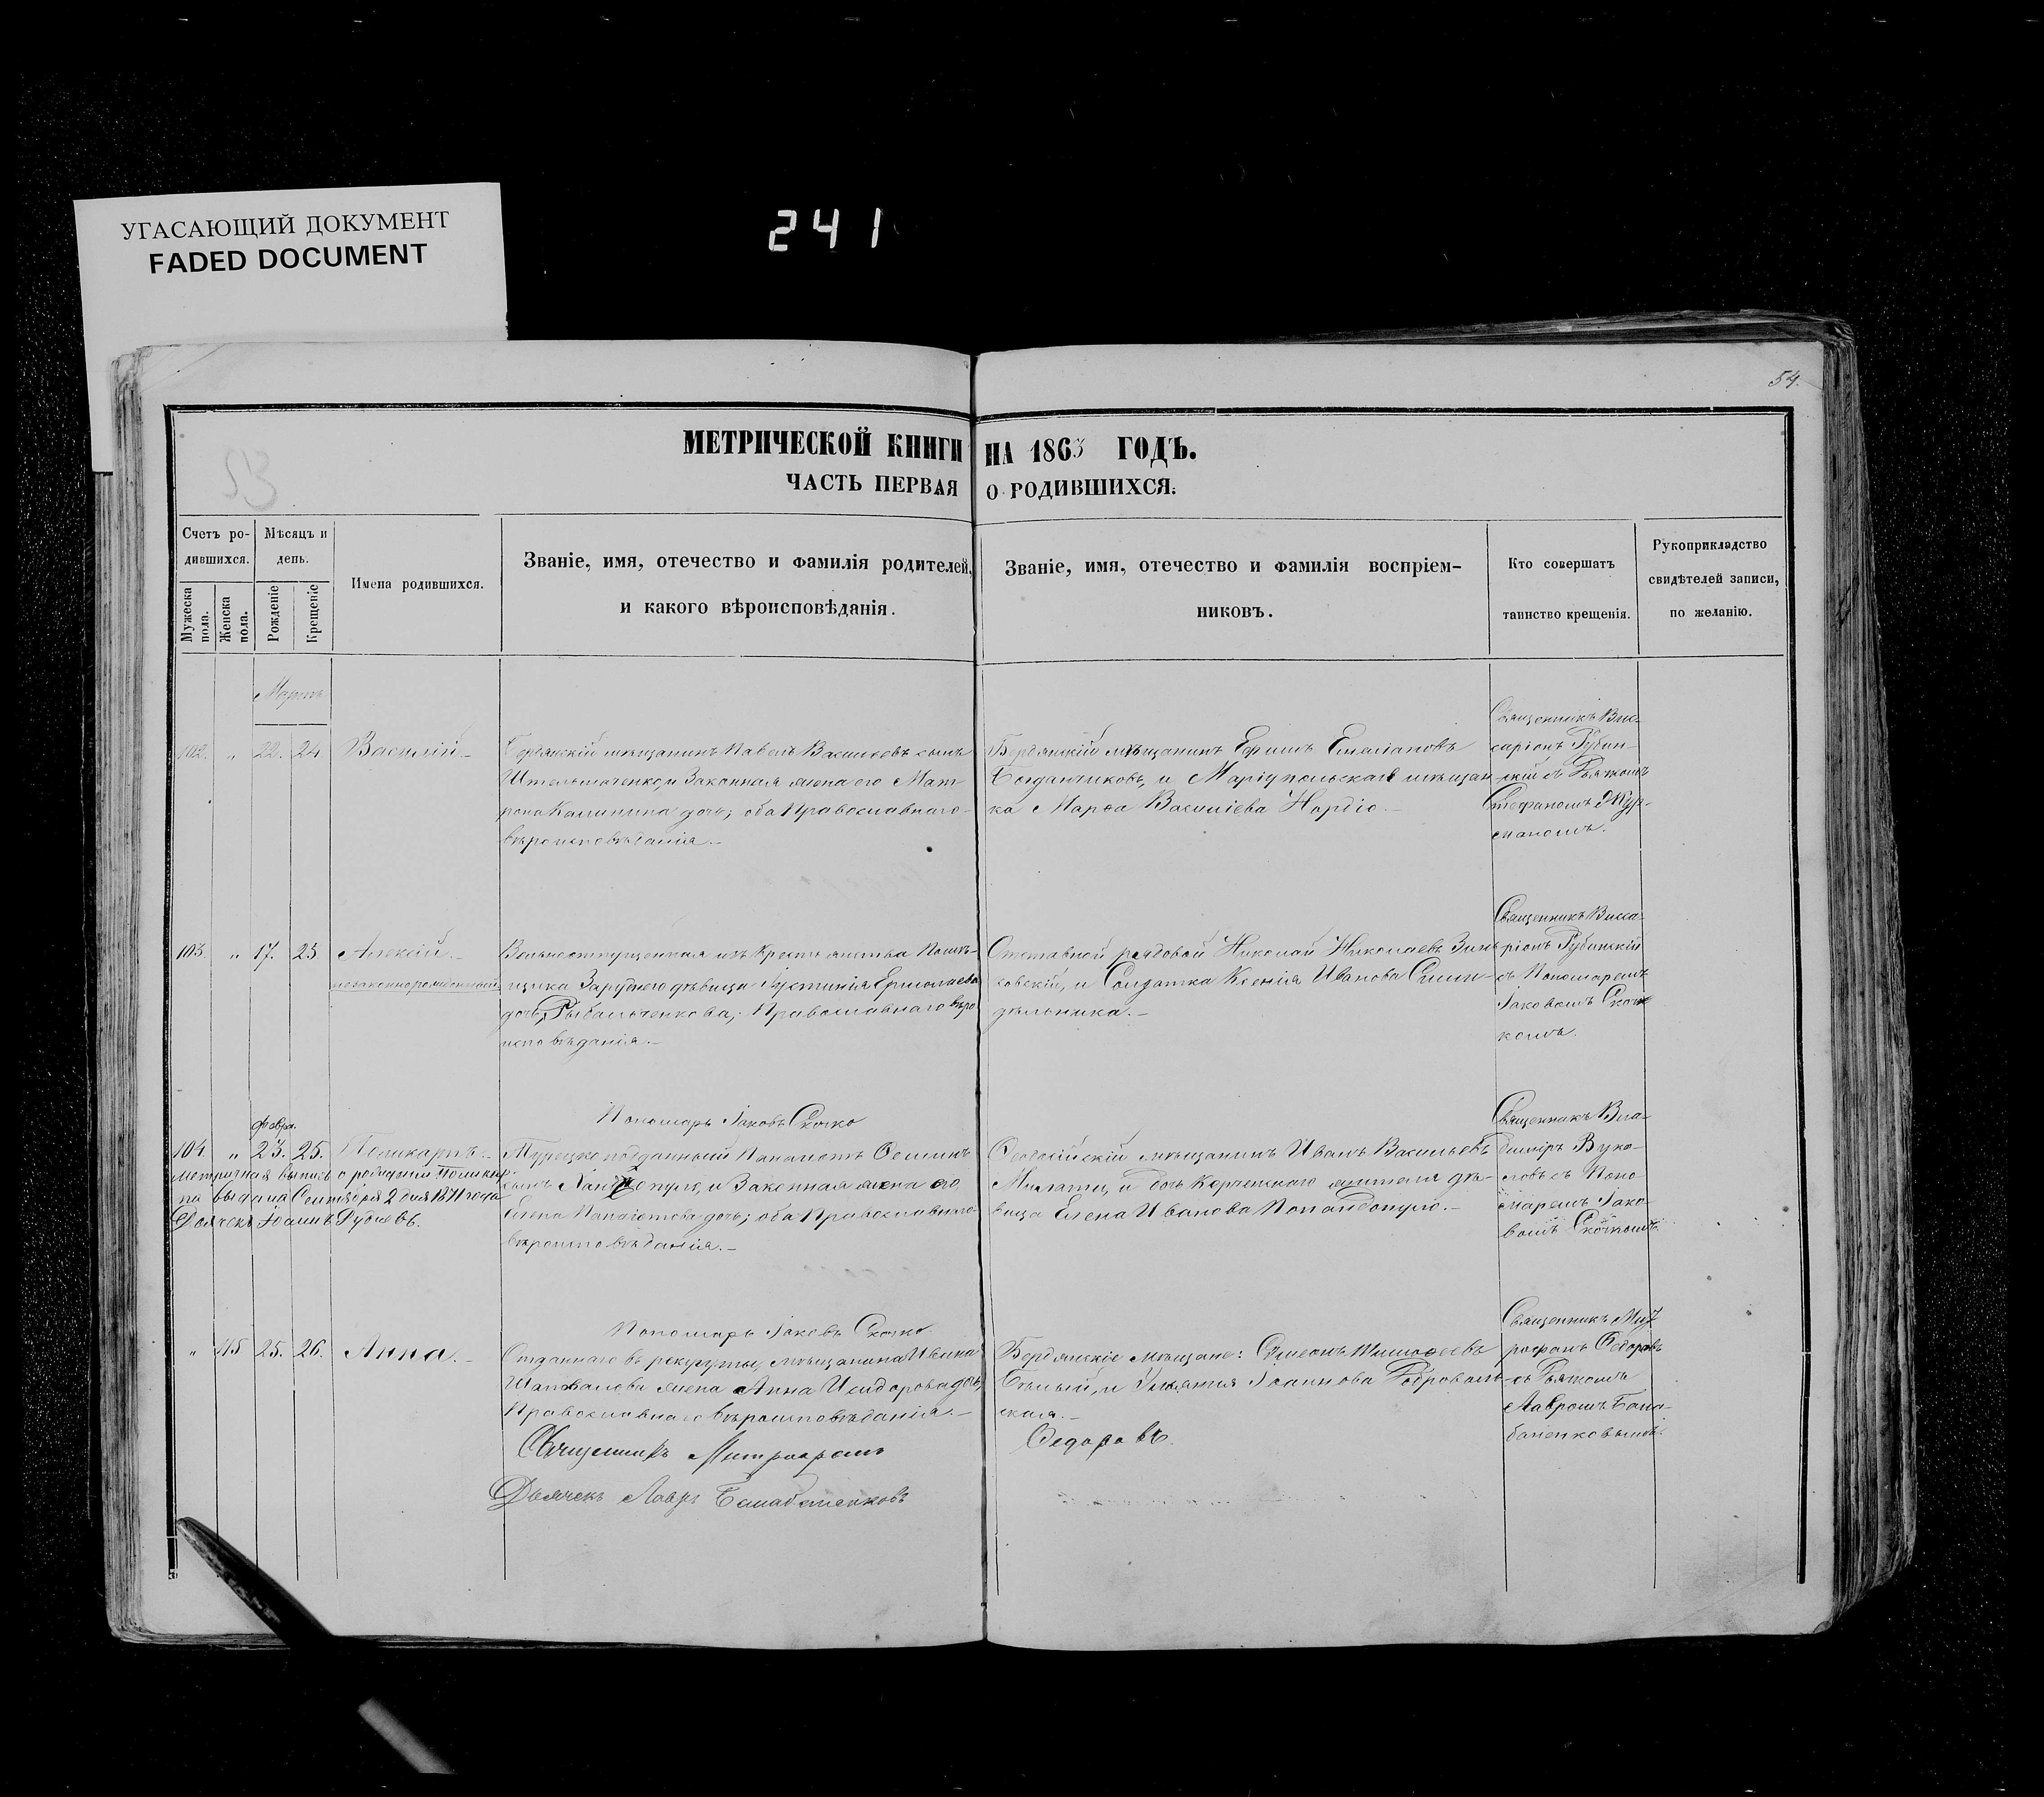 УГАСАЮЩИЙ ДОКУМЕНТ
FADED DOCUMENT
241
54.
53
МЕТРИЧЕСКОЙ КНИГИ НА 1863 ГОДЪ.
ЧАСТЬ ПЕРВАЯ О РОДИВШИХСЯ.
Счетъ ро-
дившихся.
Мужеска пола.
Женска пола.
Мѣсяцъ и
день.
Рожденіе
Крещеніе
Имена родившихся.
Званіе, имя, отечество и фамилія родителей,
и какого вѣроисповѣданія.
Званіе, имя, отечество и фамилія воспріем-
никовъ.
Кто совершатъ
таинство крещенія.
Рукоприкладство
свидѣтелей записи,
по желанію.
Мартъ
102. „ 22. 24. Василій
Бердянскій мѣщанинъ Павелъ Васильевъ сынъ
Штельмаченко, и Законная жена его Мат-
рона Калинина дочь; оба Православнаго
вѣроисповѣданія.
Бердянскій мѣщанинъ Ефимъ Емеліановъ
Богданчиковъ, и Маріупольская мѣщан-
ка Марѳа Василіева Нордіо.
Священникъ Вис-
саріонъ Губин-
скій съ Дьячкомъ
Стефаномъ Жур-
маномъ.
103. „ 17. 25 Алексій.
незаконнорожденный.
Вольноотпущенная изъ Крестьянства Помѣ-
щика Заруднего дѣвица Іустинія Ермолаева
дочь, Рыбальченкова, Православнаго вѣро
исповѣданія.
Отставной рядовой Николай Николаевъ Зинь
ковскій, и Солдатка Ксенія Иванова Сини-
дѣльника.
Священникъ Висса-
ріонъ Губинскій
съ Пономаремъ
Іаковомъ Скоч-
комъ.
Пономарь Іаковъ Скочко
Февра.
104 „ 23. 25. Поликарпъ.
метричная выпись о рожденіи Поликар
па выдана Сентября 2 дня 1871 года
Дьячекъ Іоаннъ Рудневъ.
Турецко подданный Панаіотъ Осиинъ
сынъ и Законная жена его
Елена Панаіотова дочь; оба Православнаго
вѣроисповѣданія.
Ѳеодосійскій мѣщанинъ Иванъ Васильевъ
и дочь Керченскаго жителя дѣ-
вица Елена Иванова Попандопуло.
Священникъ Вла-
диміръ Вуко-
ловъ съ Поно-
маремъ Іако-
вомъ Скочкомъ.
Пономарь Іаковъ Скочко
„ 115 25. 26. Анна.
Отданнаго въ рекруты мѣщанина Ивана
Шаповалова жена Анна Исидорова дочь,
Православнаго вѣроисповѣданія.
Бердянскіе мѣщане: Симеонъ Тимоѳеевъ
Бѣлый, и Іоаннова Добровол-
ская.
Священникъ Мит-
рофанъ Ѳедоровъ
съ Дьячкомъ
Лавромъ Бала-
баненковымъ.
Священникъ Митрофанъ Ѳедоровъ.
Дьячекъ Лавръ Балабаненковъ